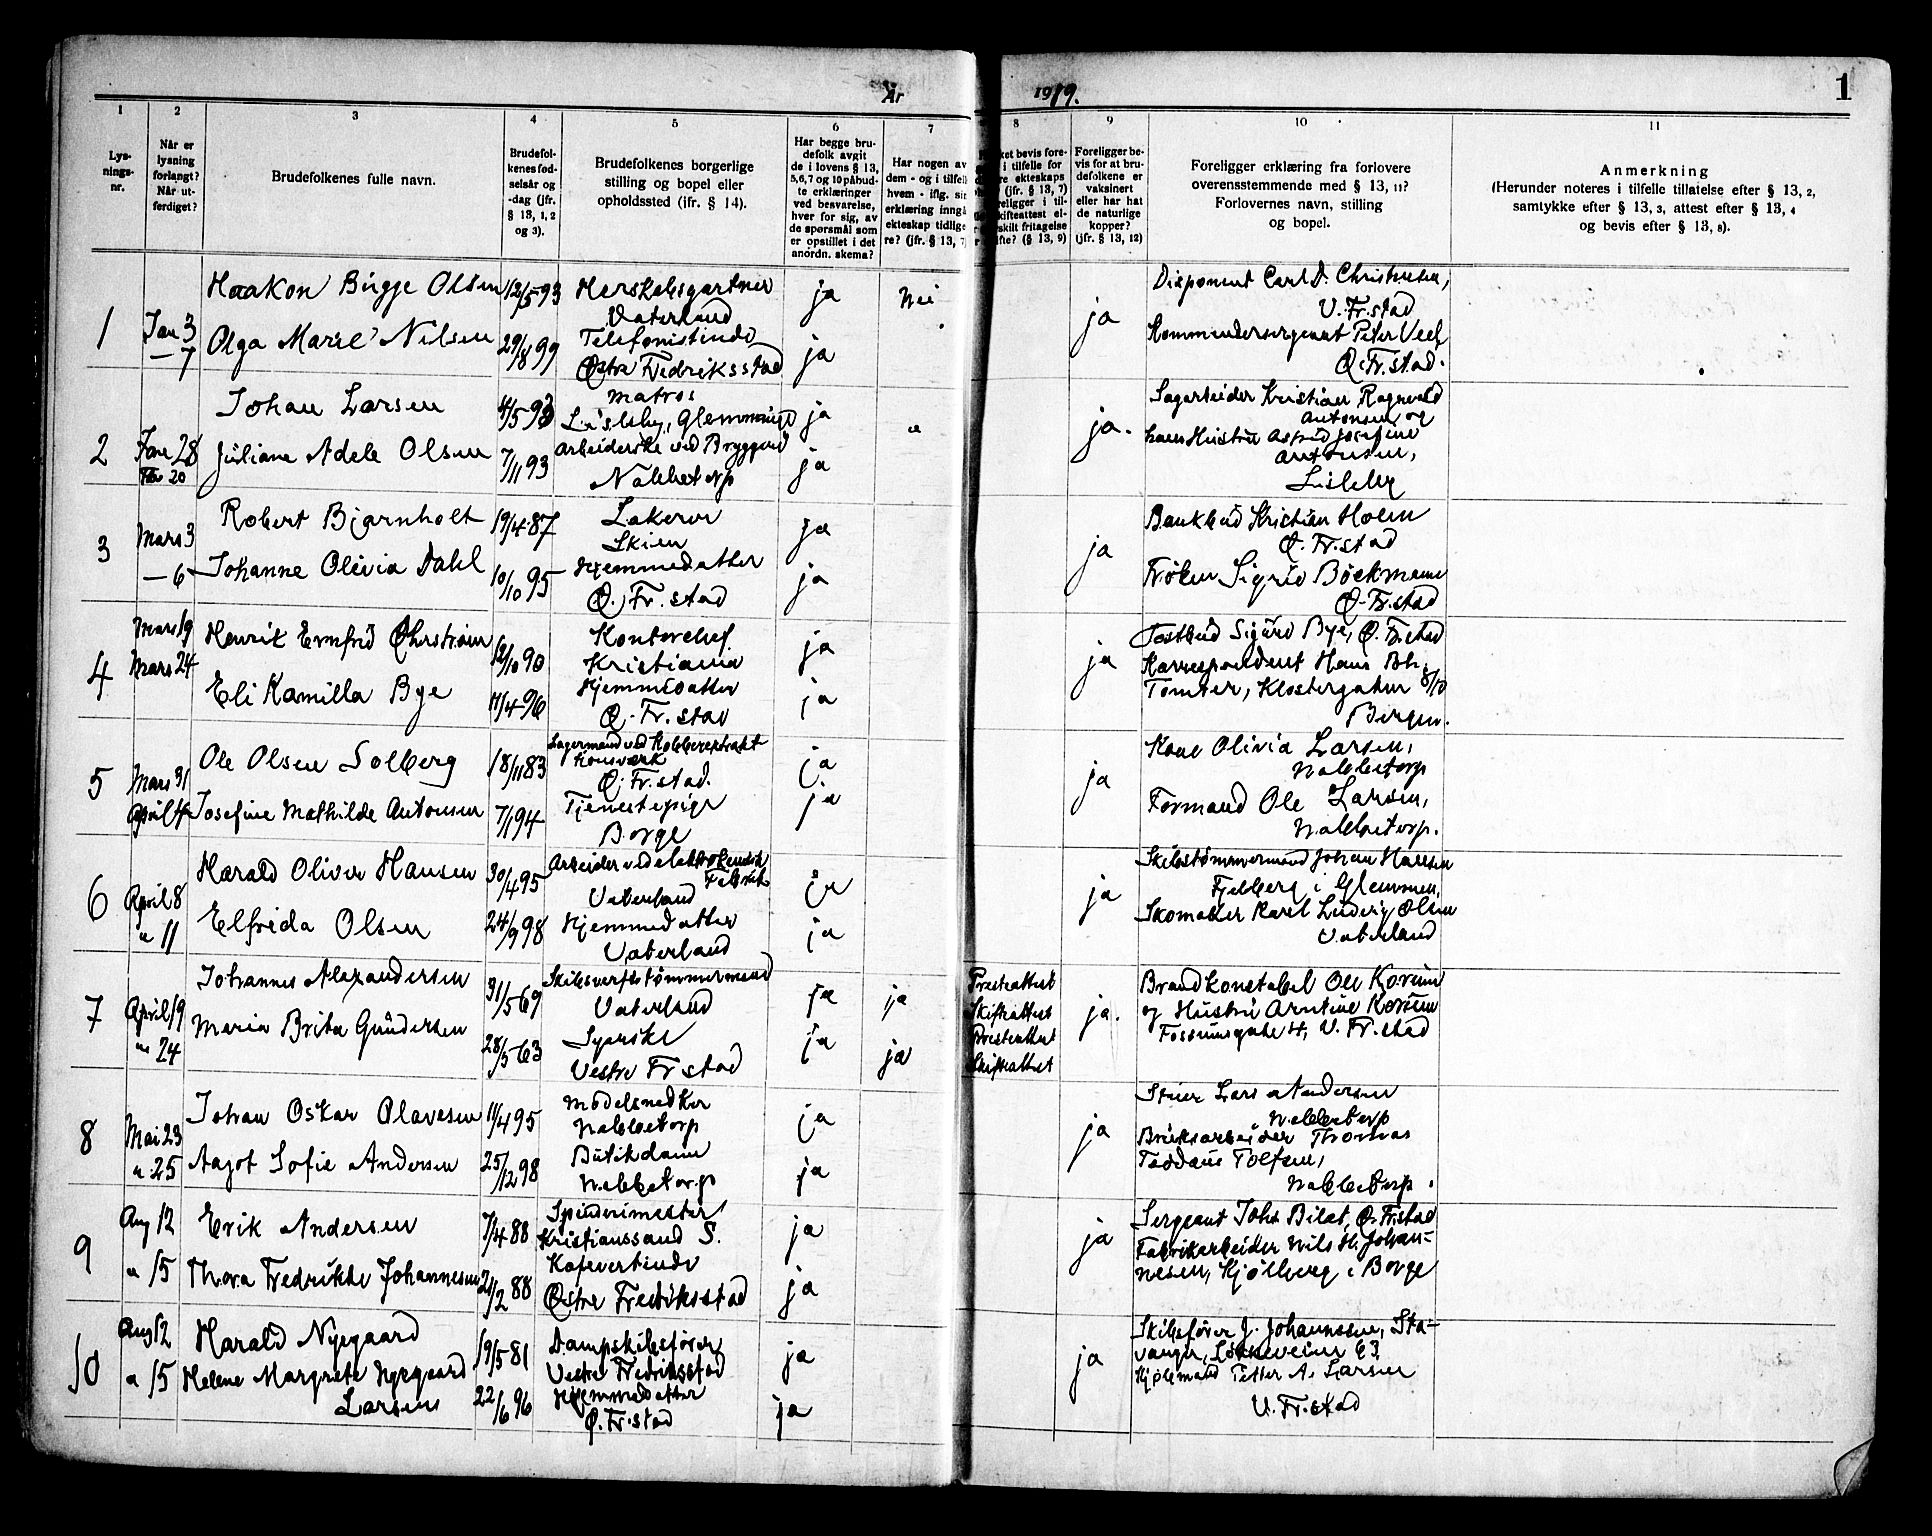 År 1919.
1
1 2 3 4 5 6 7 8 9 10 11
Lys-
nings-
nr.
Når er
lysning
forlangt?
Når ut-
ferdiget?
Brudefolkenes fulle navn.
Brudefol-
kenes fød-
selsår og
-dag (jfr.
§ 13, 1, 2
og 3).
Brudefolkenes borgerlige
stilling og bopel eller
opholdssted (ifr. § 14).
Har begge bru-
defolk avgit
de i lovens § 13,
5,6,7 og 10 påbud-
te erklæringer
ved besvarelse,
hver for sig, av
de spørsmål som
er opstillet i det
anordn. skema?
Har nogen av
dem - og i tilfell
hvem - iflg. sin
erklæring inngå
ekteskap tidlige
re? (jfr. § 13, 7
ket bevis fore-
i tilfelle for
re ekteskaps
(jfr. § 13, 7)
religger i til-
kifteattest el-
skilt fritagelse
fte? (§ 13, 9)
Foreligger be-
vis for at bru-
defolkene er
vaksinert
eller har hat
de naturlige
kopper?
(jfr. § 13, 12)
Foreligger erklæring fra forlovere
overensstemmende med § 13, 11?
Forlovernes navn, stilling
og bopel.
Anmerkning
(Herunder noteres i tilfelle tillatelse efter § 13, 2,
samtykke efter § 13, 3, attest efter § 13, 4
og bevis efter § 13, 8).
1
Jan 3
— 7
Haakon Bugge Olsen
Olga Marie Nilsen
12/5 93
29/8 99
Herskabsgartner
Vaterland
Telefonistinde
Østre Fredriksstad
ja
ja
Nei
ja
Disponent Carl D. Christensen,
V. Fr.stad
Kommandersergeant Peter
Ø. Fr.stad.
2
Jan 28
20
Johan Larsen
Juliane Adele Olsen
4/5 93
7/11 93
Matros
Lisleby, Glemminge
Arbeiderske ved Bryggeri
Nabbetorp
ja
ja
"
ja.
Sagarbeider Kristian Ragnvald
Antonsen og
hans Hustru Astrid Josefine
Antonsen,
Lisleby
3
Mars 3
— 6
Robert Bjørnholt
Johanne Olivia Dahl
19/4 87
10/10 95
Lakerer
Skien
Hjemmedatter
Ø. Fr. stad
ja
ja
ja
Bankbud Kristian Holm
Ø. Fr.stad
Frøken Sigrid Böckmann
Ø. Fr.stad
4
Mars 19
Mars 24
Henrik Ermfrid Øhrstrøm
Eli Kamilla Bye
12/10 90
17/4 96
Kontorchef
Kristiania
Hjemmedatter
Ø. Fr. stad
ja
ja
ja
Postbud Sigurd Bye, Ø. Fr.stad
Korrespondent Hans Bh.
Tomter, Klostergaten 8/10
Bergen.
5
Mars 31
April 4
Ole Olsen Solberg
Josefine Mathilde Antonsen
18/11 83
7/1 94
Lagermand ved Kobberextrakt
Ø. Fr. stad.
Tjenestepige
Borge
ja
ja
ja
Kone Olivia Larsen,
Nabbetorp
Formand Ole Larsen,
Nabbetorp.
6
April 8
" 11
Harald Oliver Hansen
Elfrida Olsen
30/4 95
24/9 98
Arbeider ved elektrokemisk
Fabrik
Vaterland
Hjemmedatter
Vaterland
ja
ja
ja
Skibstømmermand Johan Hansen
Fjeldberg i Glemmen,
Skomaker Karel Ludvig Olsen
Vaterland
7
April 19
" 24
Johannes Alexandersen
Maria Brita Gundersen
31/5 69
28/5 63
Skibsverfstømmermand
Vaterland
Syerske
Vestre Fr stad
ja
ja
ja
ja
Presteattest
Skifteattest
Presteattest
Skifteattest
ja.
Brandkonstabel Ole Korsun
og Hustru Arntine Korsun
Fossumsgate 4, V. Fr. stad
8
Mai 23
" 25
Johan Oskar Olavesen
Aagot Sofie Andersen
11/4 95
25/12 98
Modelsnedker
Nabbetorp
Butikdame
Nabbetorp
ja
ja
ja
Lars Andersen
Nabbetorp
Bruksarbeider Thomas
Taddeus Tolfsen,
Nabbetorp.
9
Aug 12
" 15
Erik Andersen
Thora Fredrikke Johannesen
7/4 88
21/2 88
Spinderimester
Kristianssand S.
Kafevertinde
Østre Fredriksstad
ja
ja
ja
Sergeant Johs Bilet, Ø. Fr.stad
Fabrikarbeider Nils H. Johan-
nesen, Kjølberg i Borge
10
Aug 12
" 15
Harald Nygaard
Helene Margrete Nygaard
Larsen
19/5 81
22/6 96
Dampskibsfører
Vestre Fredriksstad
Hjemmedatter
Ø. Fr.stad
ja
ja
ja
Skibsfører J. Johannsen, Sta-
vanger, Løkkeveien 63
Kjølemand Petter A. Larsen
V. Fr.stad